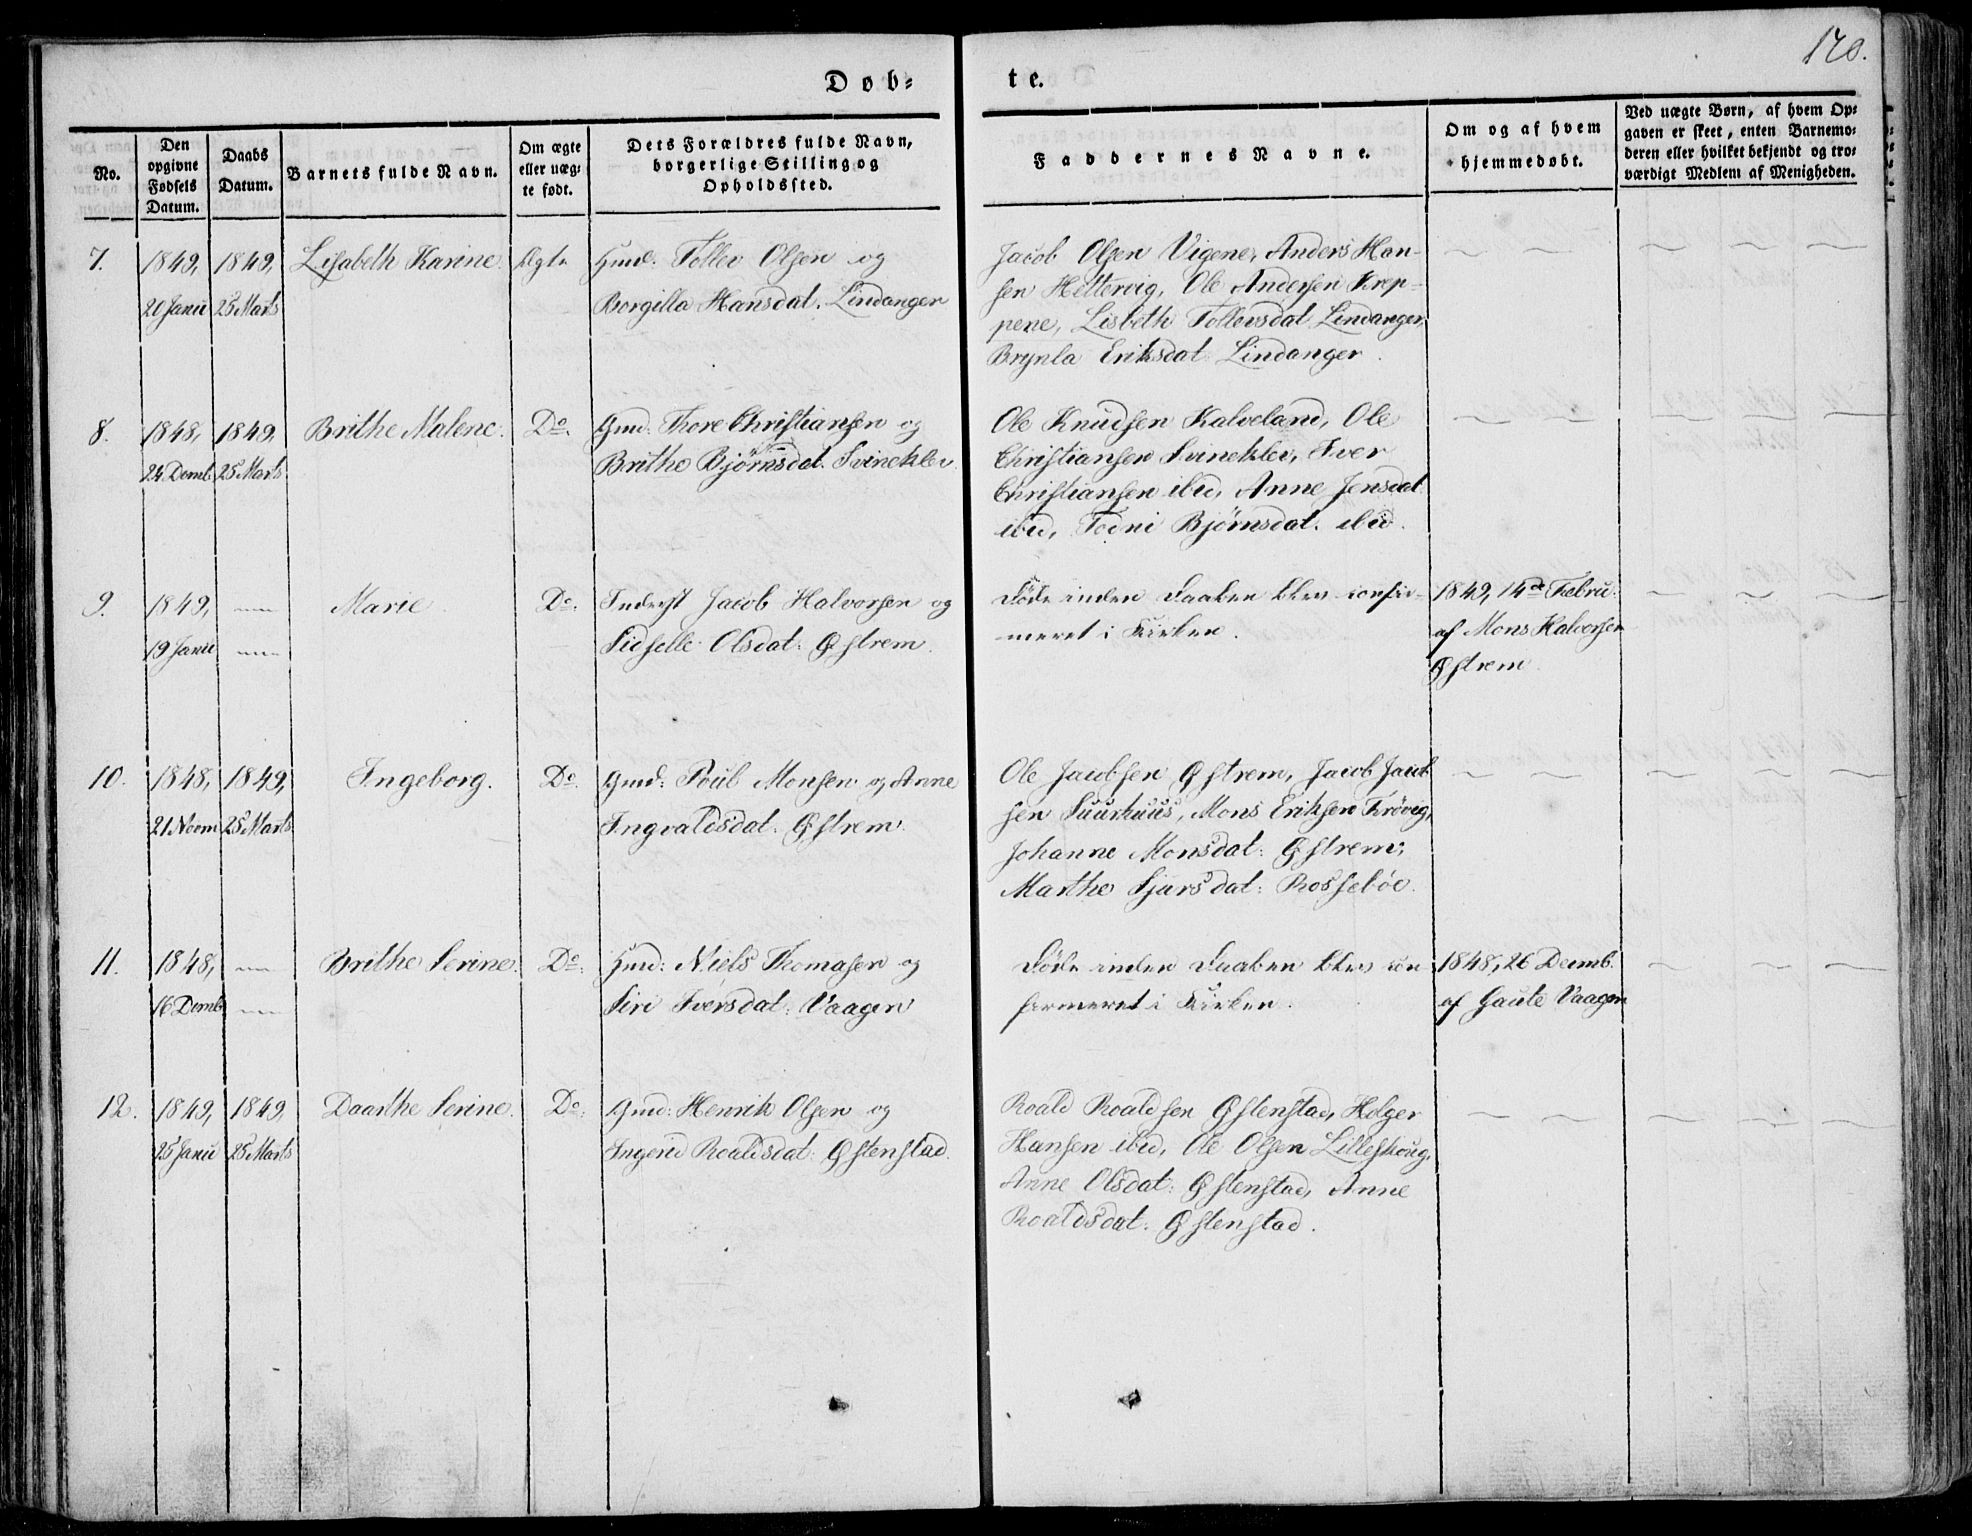 170.
Døb-
te.
No.
Den
opgivne
Fødsels
Datum.
Daabs
Datum.
Barnets fulde Navn.
Om ægte
eller uæg-
te født.
Dets Forældres fulde Navn,
borgerlige Stilling og
Opholdssted.
Faddernes Navne.
Om og af hvem
hjemmedøbt.
Ved uægte Børn, af hvem Op-
gaven er skeet, enten Barnemo-
deren eller hvilket bekjendt og tro-
værdigt Medlem af Menigheden.
7.
1849,
20 Janu
1849,
25 Marts
Lisabeth Karine.
Ægte
Gmd: Tollev Olsen og
Borgilla Hansdat. Lindanger
Jacob Olsen Vigene, Anders Han-
sen Hettervig, Ole Andersen Krep-
pene, Lisbeth Tollevsdat Lindanger,
Brynla Eriksdat Lindanger.
8.
1848,
24 Decmb.
1849.
25 Marts
Brithe Malene.
Do.
Gmd: Thore Christiansen og
Brithe Bjørnsdat. Svineklev.
Ole Knudsen Kalveland, Ole
Christiansen Svineklev, Iver
Christiansen ibid, Anne Jensdat
ibid, Todni Bjørnsdat. ibid.
9.
1849,
19 Janu
Marie
Do.
Inderst Jacob Halvorsen og
Sidselle Olsdat: Østrem.
Døde inden Daaben blev confir-
meret i Kirken.
1849, 14de Febru.
af Mons Halvorsen
Østrem.
10.
1848,
21 Novm
1849,
25 Marts
Ingeborg.
Do.
Gmd: Poul Monsen og Anne
Ingvaldsdat. Østrem.
Ole Jacobsen Østrem, Jacob Jacob
sen Suurhuus, Mons Eriksen Krøveg,
Johanne Monsdat: Østrem;
Marthe Sjursdat: Rossebøe.
11.
1848,
16 Decmb.
Brithe Serine.
Do.
Gmd: Niels Thomasen og
Siri Iversdat: Vaagen
Døde inden Daaben blev con
firmeret i Kirken.
1848, 26 Decmb.
af Gaute Vaagen
12.
1849,
25 Janu
1849,
25 Marts
Daarthe Serine.
Do.
Gmd: Henrik Olsen og
Ingerid Roaldsdat: Østenstad.
Roald Roaldsen Østenstad, Holger
Hansen ibid, Ole Olsen Lilleskoug,
Anne Olsdat: Østenstad, Anne
Roaldsdat: Østenstad.